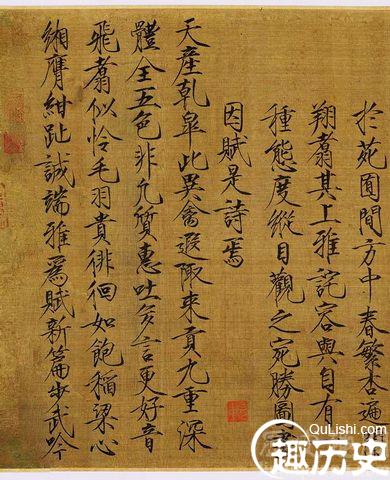 於苑囿間方中春繁杏遍
翔翥其上雅詫容與自有
種態度縱目觀之宛勝圖
因賦是詩焉
天產乾皐此異禽遐陬來貢九重深
體全五色非凡質惠吐多言更好音
飛翥似怜毛羽貴徘徊如飽稻粱心
緗膺紺趾誠端雅爲賦新篇步武吟
QuLishi.com
趣历史